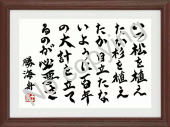 いつ松を植え
たか杉を植え
たか目立たな
いように百年
の大計を立て
るのが必要さ
勝海舟